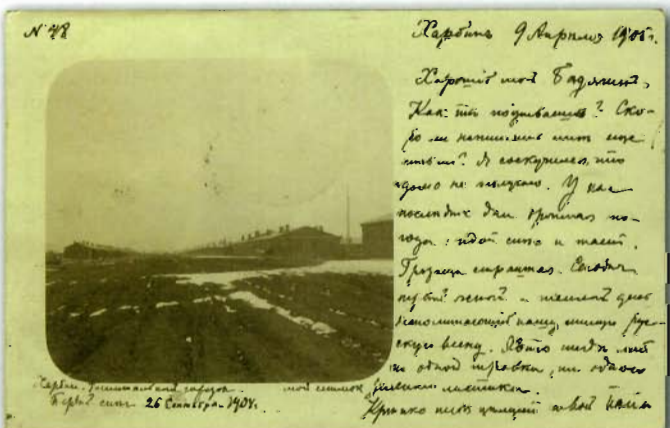 N 48
Харбинъ 9 Апрѣля 1905 г.
Хорошій мой
Какъ ты поживаешь? Ско-
ро ли напишешь мнѣ еще
Я соскучился, что
давно не получаю. У насъ
послѣдніе дни по-
года: идетъ снѣгъ и таетъ.
Грязища страшная. Сегодня
первый ясный и теплый день
напоминающій нашу милую рус-
скую весну.
ни одной травки, ни одного
листика.
Крѣпко цѣлую твой папа
Харбин. Госпитальный городокъ. мой снимок
Первый снѣгъ 26 Сентября 1904 г.